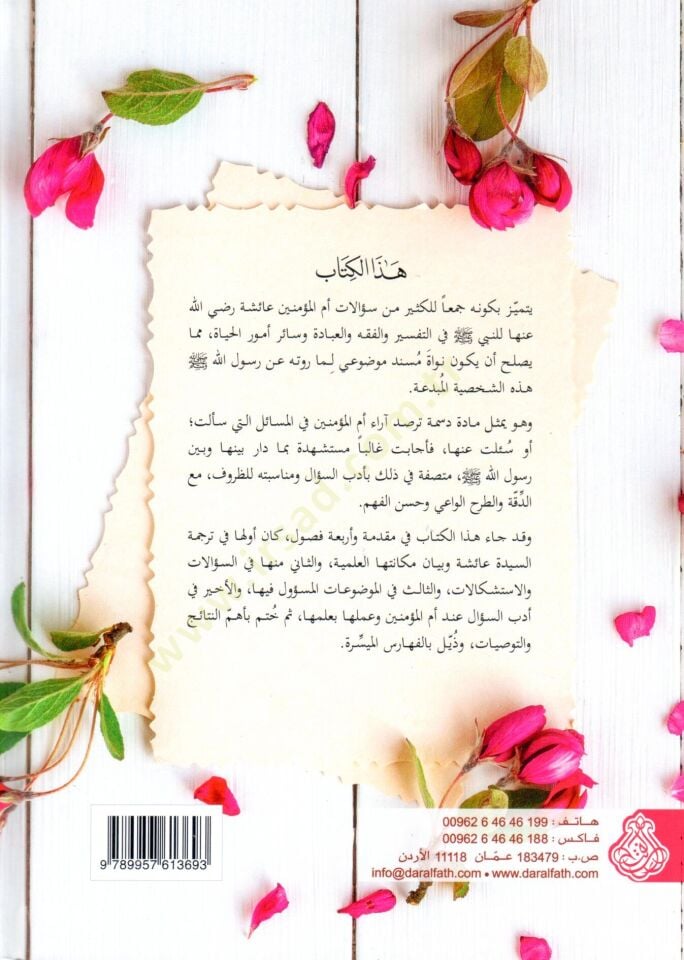 هَذَا الكِتَاب
يتميّز بكونه جمعاً للكثير من سؤالات أم المؤمنين عائشة رضي الله
عنها للنبي ﷺ في التفسير والفقه والعبادة وسائر أمور الحياة، مما
يصلح أن يكون نواةَ مُسند موضوعي لِما روته عن رسول الله ﷺ
هذه الشخصية المُبدعة.
وهو يمثل مادة دسمة ترصد آراء أم المؤمنين في المسائل التي سألت؛
أو سُئلت عنها، فأجابت غالباً مستشهدة بما دار بينها وبين
رسول الله ﷺ، متصفة في ذلك بأدب السؤال ومناسبته للظروف، مع
الدِّقة والطرح الواعي وحسن الفهم.
وقد جاء هذا الكتاب في مقدمة وأربعة فصول، كان أولها في ترجمة
السيدة عائشة وبيان مكانتها العلمية، والثاني منها في السؤالات
والاستشكالات، والثالث في الموضوعات المسؤول فيها، والأخير في
أدب السؤال عند أم المؤمنين وعملها بعلمها، ثم خُتم بأهمّ النتائج
والتوصيات، وذُيّل بالفهارس الميسِّرة.
هاتف : 199 46 46 6 00962
فاكس : 188 46 46 6 00962
ص.ب : 183479 عمّان 11118 الأردن
info@daralfath.com • www.daralfath.com
9 789957 613693